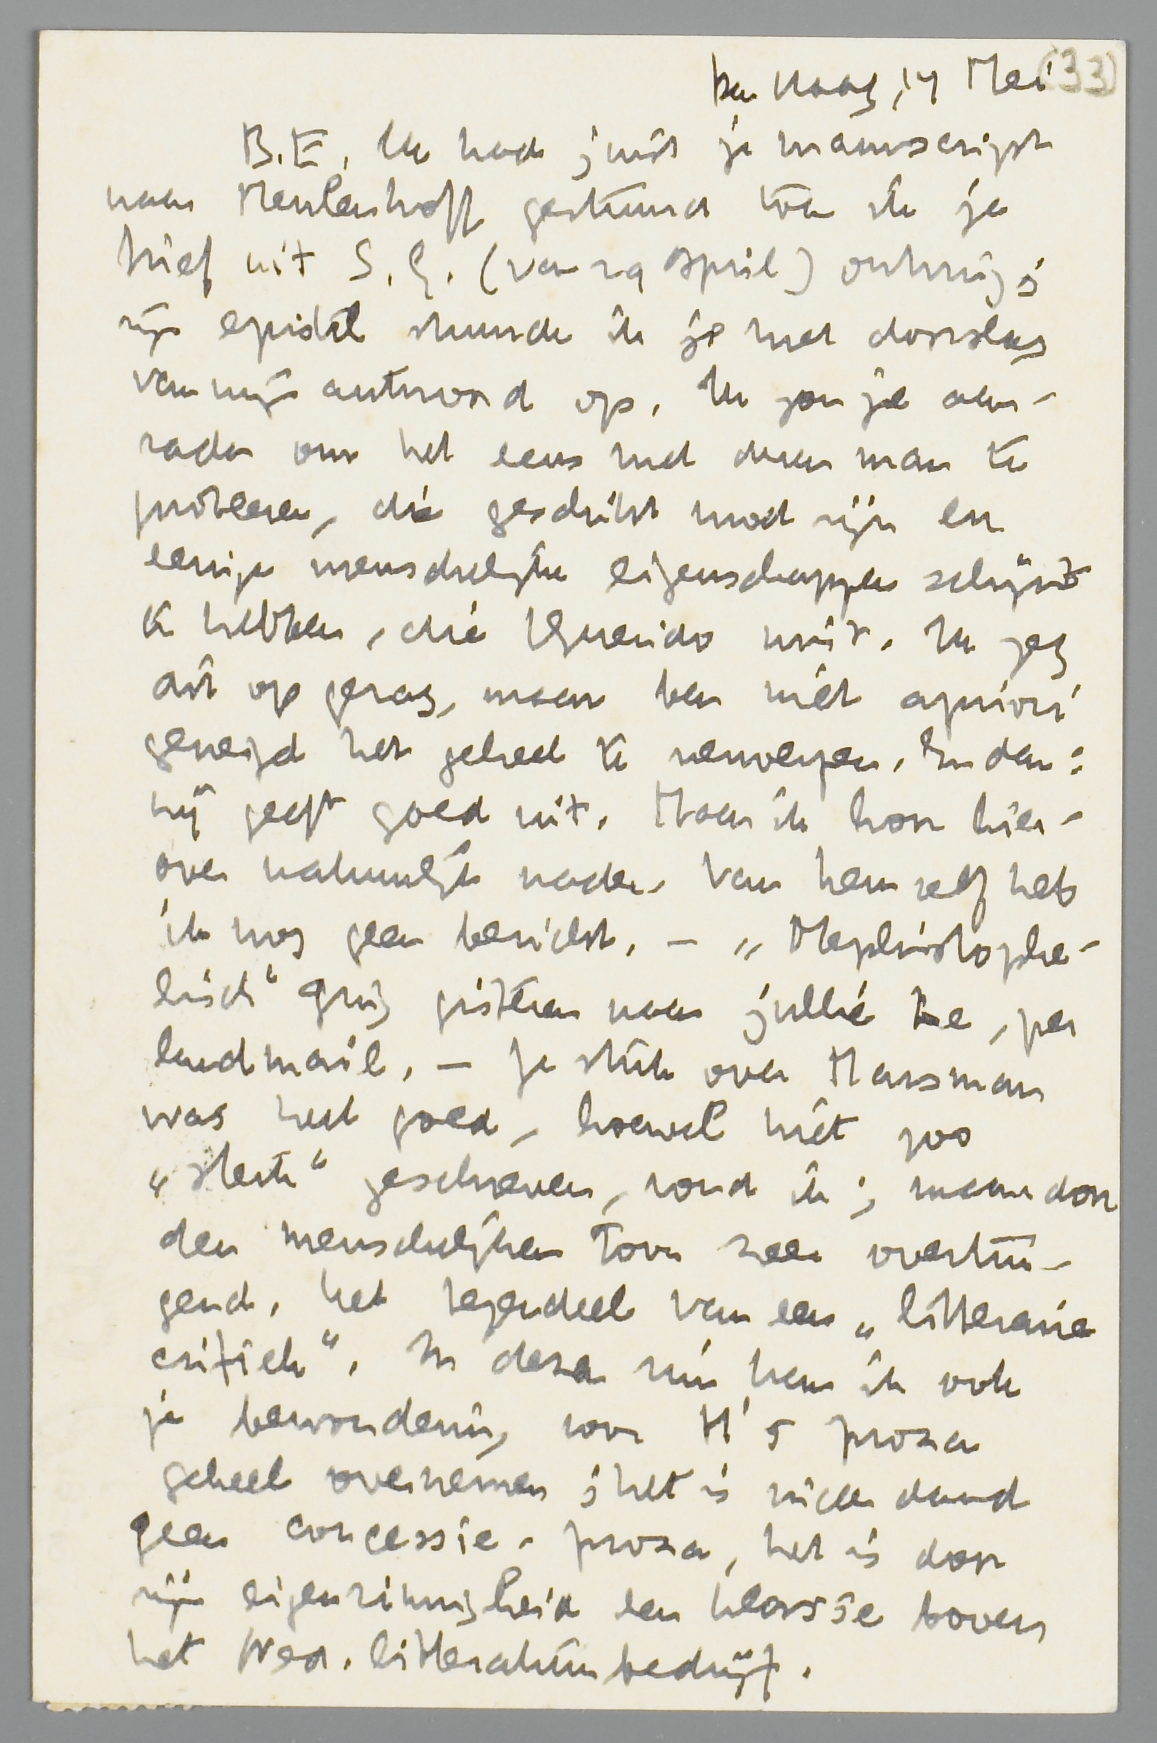 Den Haag, 14 Mei (33)
B.E., Ik had juist je manuscript
naar Meulenhoff gestuurd toen ik je
brief uit S.G. (van 29 April) ontving;
zijn epistel stuurde ik je met doorslag
van mijn antwoord op. Ik zou je aan-
raden om het eens met dezen man te
probeeren, die geschikt moet zijn en
eenige menschelijke eigenschappen schijnt
te hebben, die Querido mist. Ik zeg
dit op gezag, maar ben niet apriori
geneigd het geheel te verwerpen. En dan:
hij geeft goed uit. Maar ik hoor hier-
over natuurlijk nader. Van hem zelf heb
ik nog geen bericht. — „Mephistophe-
lisch“ ging gisteren naar jullie toe, per
landmail. — Je stuk over Marsman
was heel goed, hoewel niet zoo
„sterk“ geschreven, vond ik; maar door
den menschelijken toon zeer overtui-
gend, het tegendeel van een „litteraire
critiek“. In deze zin kan ik ook
je bewondering voor M's proza
geheel overnemen; het is inderdaad
geen concessie-proza, het is door
zijn eigenzinnigheid een klasse boven
het Ned. litteratuurbedrijf.